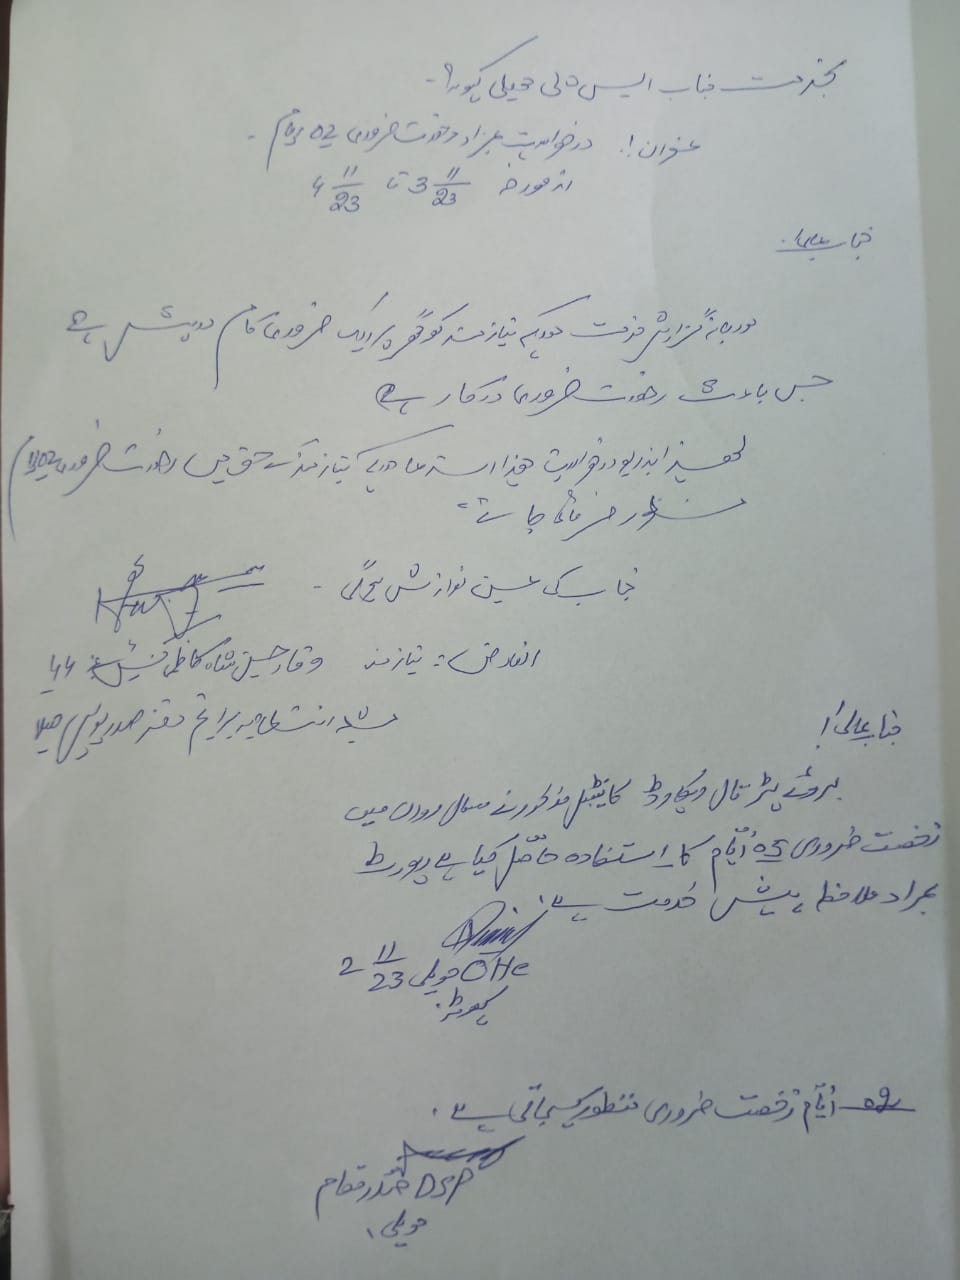 بخدمت جناب ایس پی حویلی کہوٹہ۔
عنوان!۔ درخواست بمراد رخصت ضروری 02 ایام۔
از مورخہ 3 11/23 تا 4 11/23
جناب عالی!
مودبانہ گزارش خدمت ہے کہ نیازمند کو گھر پر ایک ضروری کام درپیش ہے
جس باعث رخصت ضروری درکار ہے
لہذا بذریعہ درخواست ہذا استدعا ہے کہ نیازمند کے حق میں رخصت ضروری 02 ایام
منظور فرمائی جائے۔
جناب کی عین نوازش ہو گی۔
العارض:۔ نیازمند وقار حسین شاہ کاظمی کنسٹیبل 44
شعبہ انتظامیہ برانچ دفتر صدر پولیس حویلی
جناب عالی!
بروئے پڑتال ریکارڈ کانسٹیبل مذکور نے سال رواں میں
رخصت ضروری 05 ایام کا استفادہ حاصل کیا ہے رپورٹ
بمراد ملاحظہ پیش خدمت ہے۔
OHC حویلی 2 11/23
کہوٹہ۔
02 ایام رخصت ضروری منظور کی جاتی ہے۔
DSP صدر مقام
حویلی۔